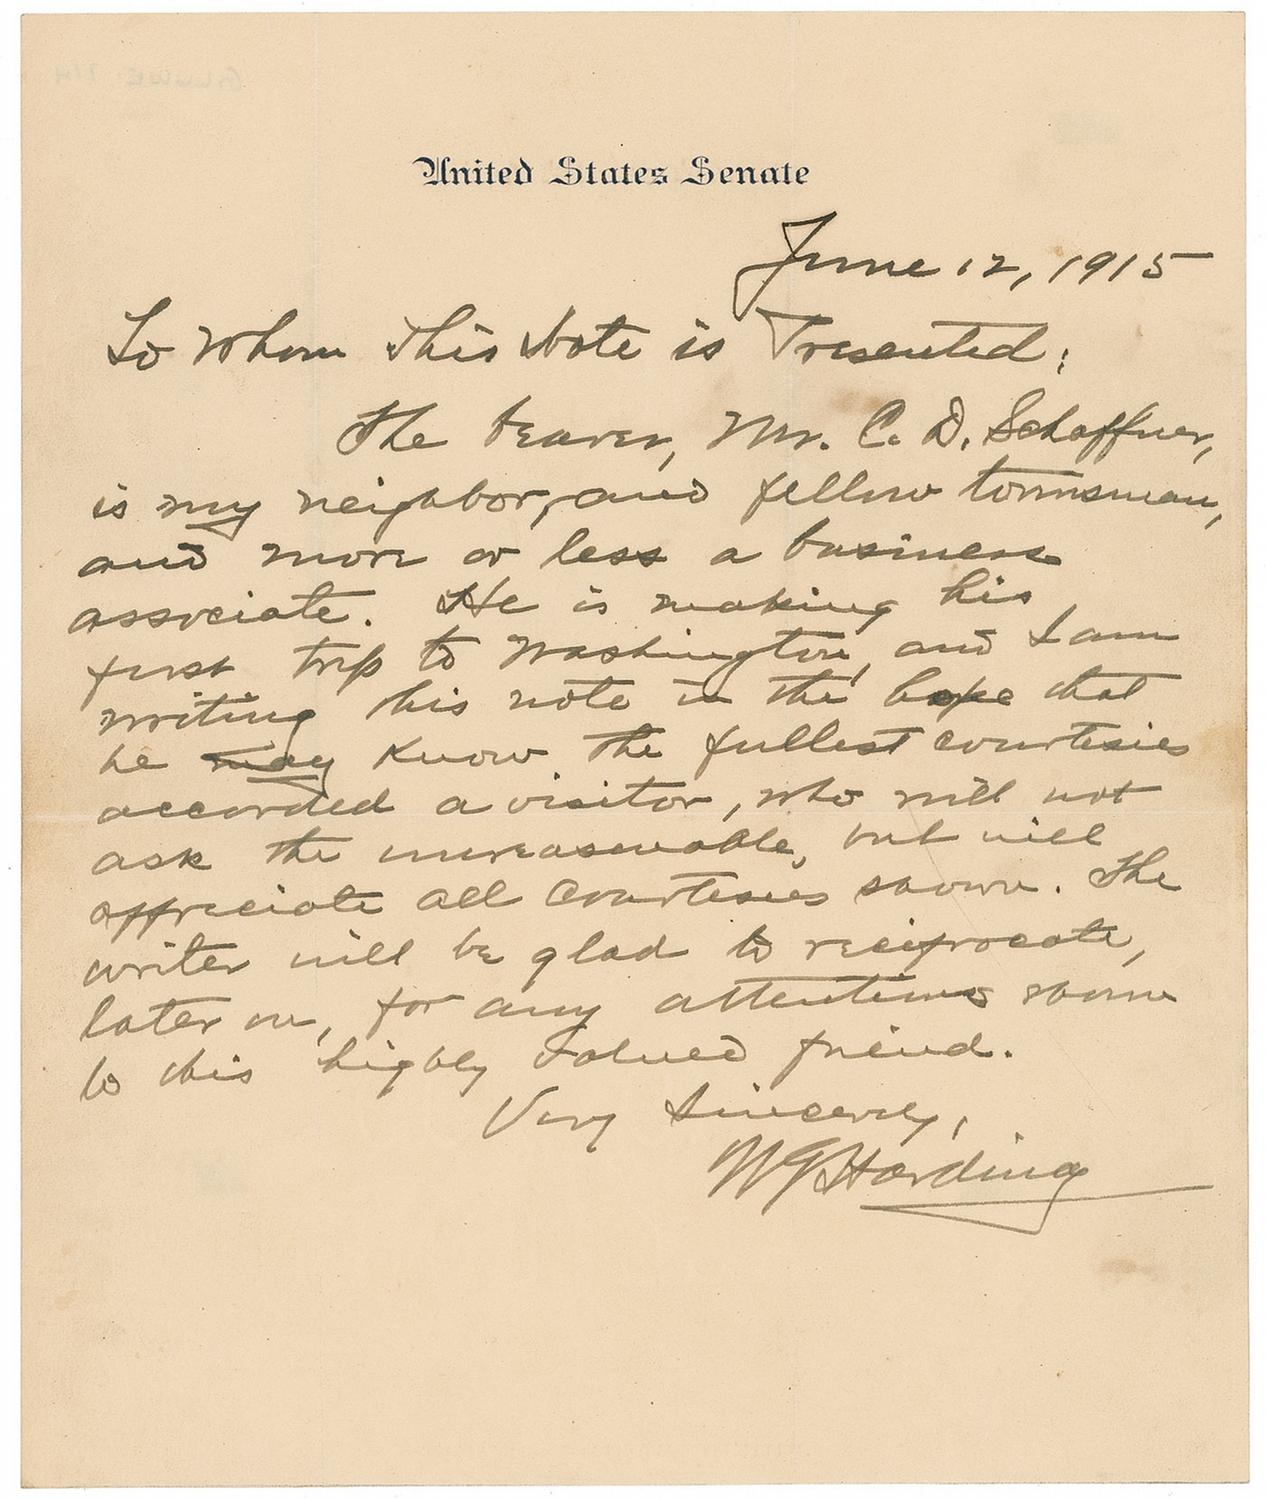 United States Senate
June 12, 1915
To Whom This Note is Presented:
The bearer, Mr. C. D. Schaffner,
is my neighbor, and fellow townsman,
and more or less a business
associate. He is making his
first trip to Washington, and I am
writing this note in the hope that
he may know the fullest courtesies
accorded a visitor, who will not
ask the unreasonable, but will
appreciate all courtesies shown. The
writer will be glad to reciprocate,
later on, for any attentions shown
to this highly valued friend.
Very Sincerely,
WGHarding